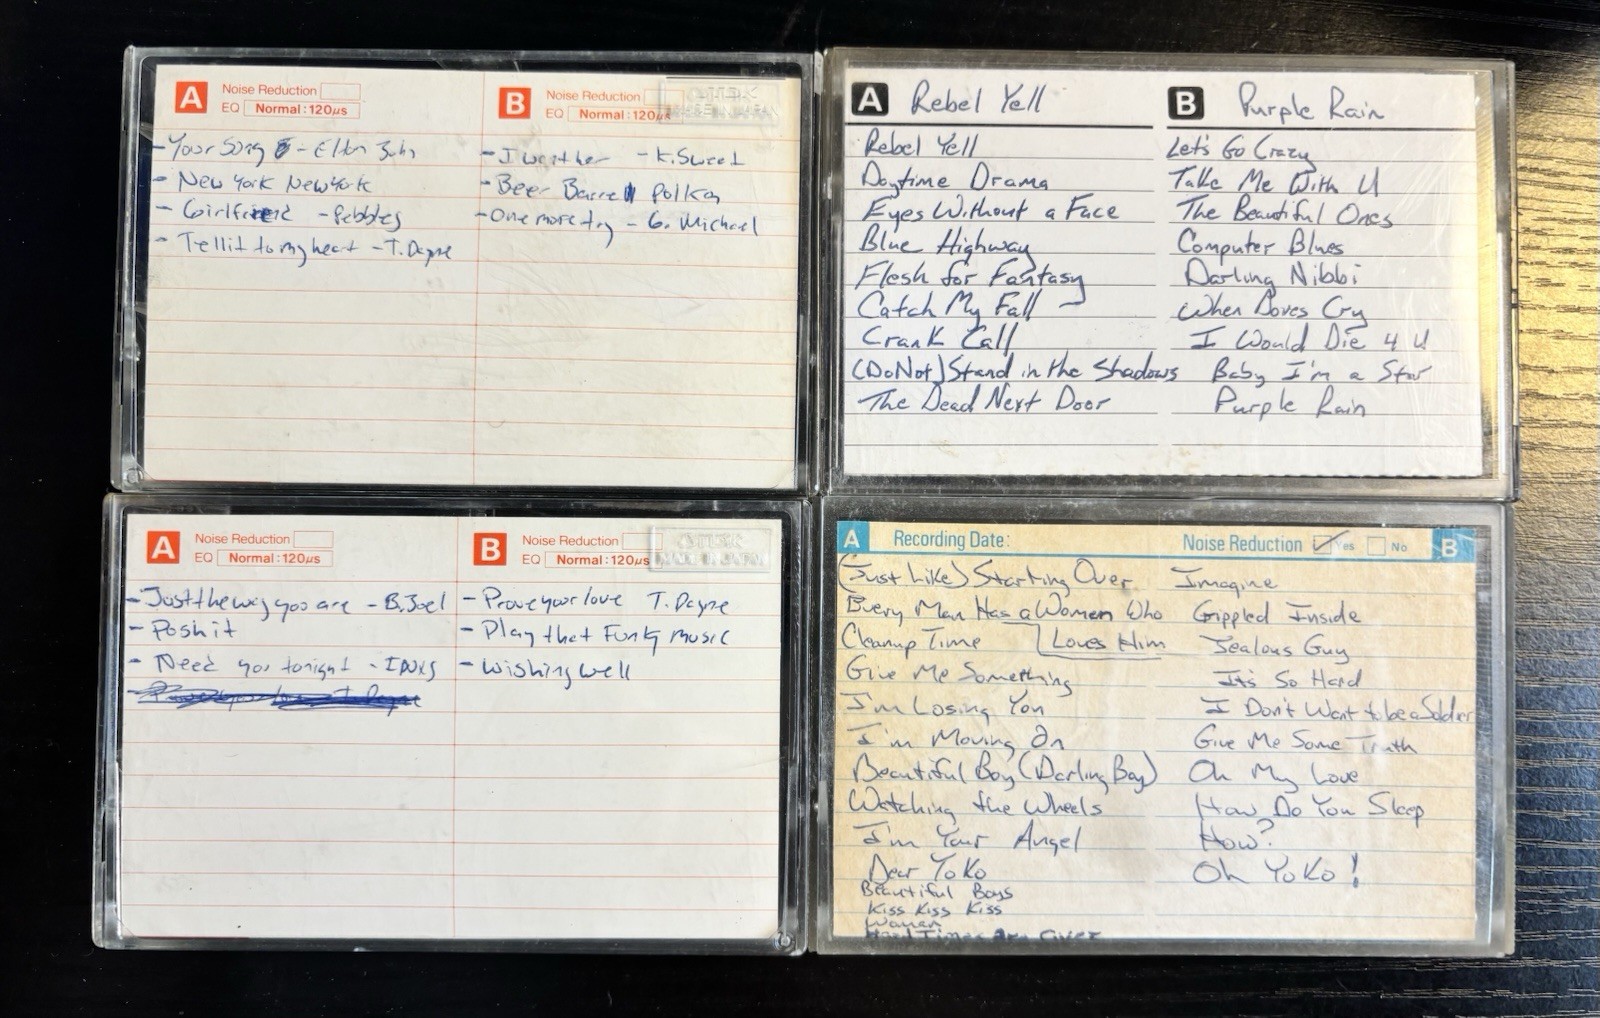 A Noise Reduction
EQ Normal:120µs
-Your Song - Elton John
- New York New York
- Girlfriend - Pebbles
- Tell it to my heart - T. Dayne
B Noise Reduction
EQ Normal:120µs
- I want her - K. Sweat
- Beer Barrel Polka
- One more try - G. Michael
A Rebel Yell
Rebel Yell
Daytime Drama
Eyes Without a Face
Blue Highway
Flesh for Fantasy
Catch My Fall
Crank Call
(Do Not) Stand in the Shadows
The Dead Next Door
B Purple Rain
Let's Go Crazy
Take Me With U
The Beautiful Ones
Computer Blues
Darling Nibbi
When Doves Cry
I Would Die 4 U
Baby I'm a Star
Purple Rain
A Noise Reduction
EQ Normal:120µs
- Just the way you are - B. Joel
- Posh it
- Need you tonight - INXS
B Noise Reduction
EQ Normal:120µs
- Prove your love T. Dayne
- Play that Funky music
- Wishing well
A Recording Date: Noise Reduction Yes No B
(Just Like) Starting Over
Every Man Has a Women Who
Loves Him
Cleanup Time
Give Me Something
I'm Losing You
I'm Moving On
Beautiful Boy (Darling Boy)
Watching the Wheels
I'm Your Angel
Dear Yoko
Beautiful Boys
Kiss Kiss Kiss
Woman
Hard Times Are Over
Imagine
Grippled Inside
Jealous Guy
It's So Hard
I Don't Want to be a Soldier
Give Me Some Truth
Oh My Love
How Do You Sleep
How?
Oh Yoko!